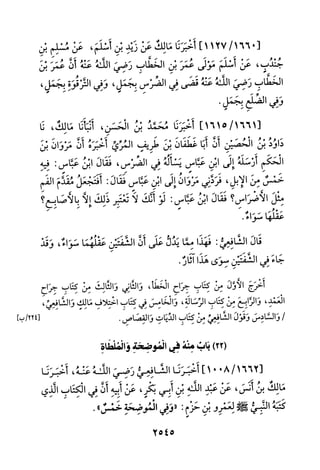 [١١٢٧/١٦٦٠] أَخْبَرَنَا مَالِكٌ عَنْ زَيْدِ بْنِ أَسْلَمَ، عَنْ مُسْلِمِ بْنِ
جُنْدُبٍ، عَنْ أَسْلَمَ مَوْلَى عُمَرَ بْنِ الخَطَّابِ رَضِيَ اللَّهُ عَنْهُ أَنَّ عُمَرَ بْنَ
الخَطَّابِ رَضِيَ اللَّهُ عَنْهُ قَضَى فِي الضِّرْسِ بِجَمَلٍ، وَفِي التَّرْقُوَةِ بِجَمَلٍ،
وَفِي الضِّلَعِ بِجَمَلٍ.
[١٦١٥/١٦٦١] أَخْبَرَنَا مُحَمَّدُ بْنُ الْحَسَنِ، أَنْبَأَنَا مَالِكٌ، نَا
دَاوُدُ بْنُ الْحُصَيْنِ أَنَّ أَبَا غَطَفَانَ بْنَ طَرِيفٍ الْمُرِّيَّ أَخْبَرَهُ أَنَّ مَرْوَانَ بْنَ
الْحَكَمِ أَرْسَلَهُ إِلَى ابْنِ عَبَّاسٍ يَسْأَلُهُ فِي الضِّرْسِ، فَقَالَ ابْنُ عَبَّاسٍ: فِيهِ
خَمْسٌ مِنَ الإِبِلِ، فَرَدَّنِي مَرْوَانُ إِلَى ابْنِ عَبَّاسٍ فَقَالَ: أَفَتَجْعَلُ مُقَدَّمَ الفَمِ
مِثْلَ الأَضْرَاسِ؟ فَقَالَ ابْنُ عَبَّاسٍ: لَوْ أَنَّكَ لَا تَعْتَبِرُ ذَلِكَ إِلاَّ بِالأَصَابِعِ؟
عَقْلُهَا سَوَاءٌ.
قَالَ الشَّافِعِيُّ: فَهَذَا مِمَّا يَدُلُّ عَلَى أَنَّ الشَّفَتَيْنِ عَقْلُهُمَا سَوَاءٌ، وَقَدْ
جَاءَ فِي الشَّفَتَيْنِ سِوَى هَذَا آثَارٌ.
أَخْرَجَ الأَوَّلَ مِنْ كِتَابِ جِرَاحِ الْخَطَأِ، وَالثَّانِي وَالثَّالِثَ مِنْ كِتَابِ جِرَاحِ
الْعَمْدِ، وَالرَّابِعَ مِنْ كِتَابِ الرِّسَالَةِ، وَالْخَامِسَ فِي كِتَابِ اخْتِلَافِ مَالِكٍ وَالشَّافِعِيِّ،
/ وَالسَّادِسَ وَقَوْلَ الشَّافِعِيِّ مِنْ كِتَابِ الدِّيَاتِ وَالقِصَاصِ. [٢٢٤/ب]
(٢٢) بَابٌ مِنْهُ فِي الْمُوضِحَةِ وَالْمُلْطَاةِ
[١٠٠٨/١٦٦٢] أَخْبَرَنَا الشَّافِعِيُّ رَضِيَ اللَّهُ عَنْهُ، أَخْبَرَنَا
مَالِكُ بنُ أَنَسٍ، عَنْ عَبْدِ اللَّهِ بْنِ أَبِي بَكْرٍ، عَنْ أَبِيهِ أَنَّ فِي الْكِتَابِ الَّذِي
كَتَبَهُ النَّبِيُّ ﷺ لِعَمْرِو بْنِ حَزْمٍ: «وَفِي الْمُوضِحَةِ خَمْسٌ».
٢٥٤٥